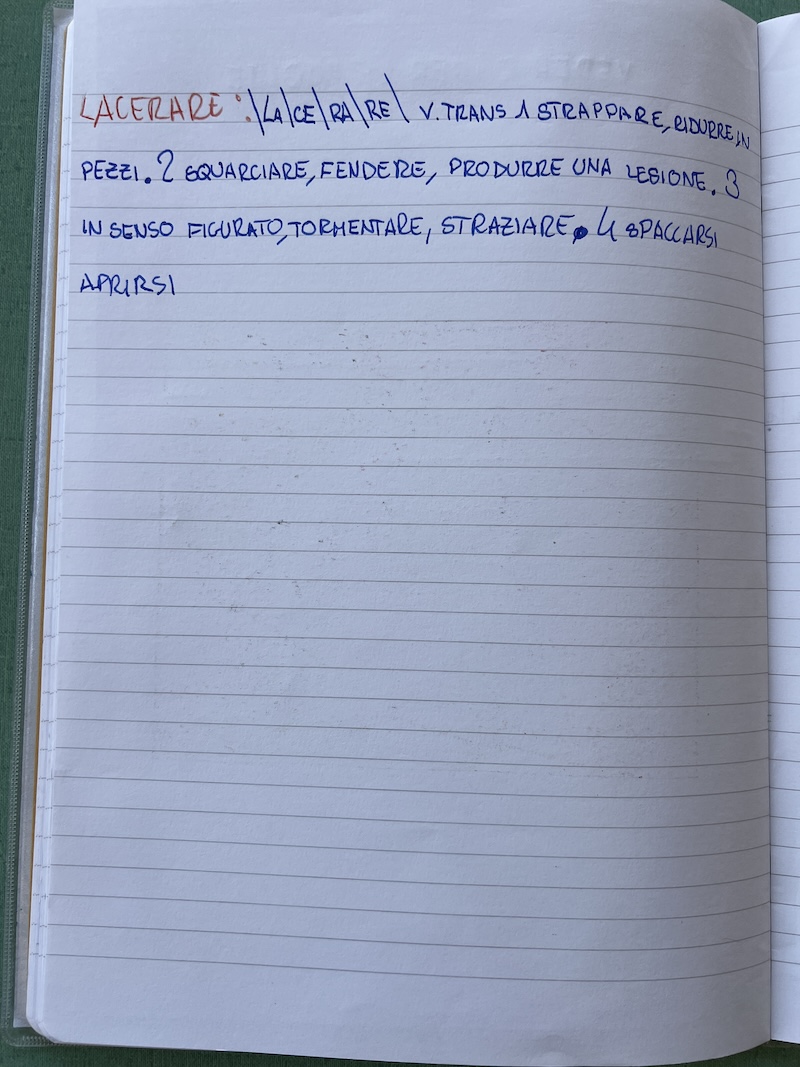 LACERARE :\LA\CE\RA\RE\ V.TRANS 1 STRAPPARE, RIDURRE IN
PEZZI. 2 SQUARCIARE, FENDERE, PRODURRE UNA LESIONE. 3
IN SENSO FIGURATO, TORMENTARE, STRAZIARE. 4 SPACCARSI
APRIRSI